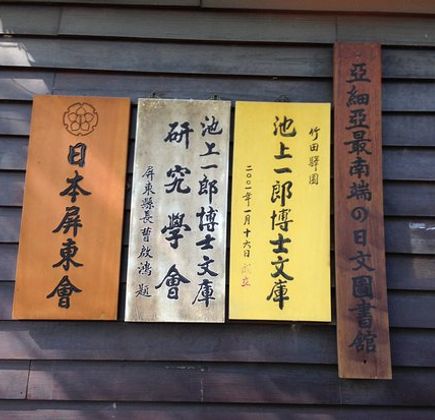 亞細亞最南端の日文圖書館
竹田驛園
池上一郎博士文庫
二〇〇一年一月十六日成立
池上一郎博士文庫
研究學會
屏東縣長曹啟鴻題
日本屏東會